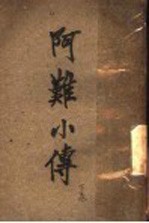 阿難小傳